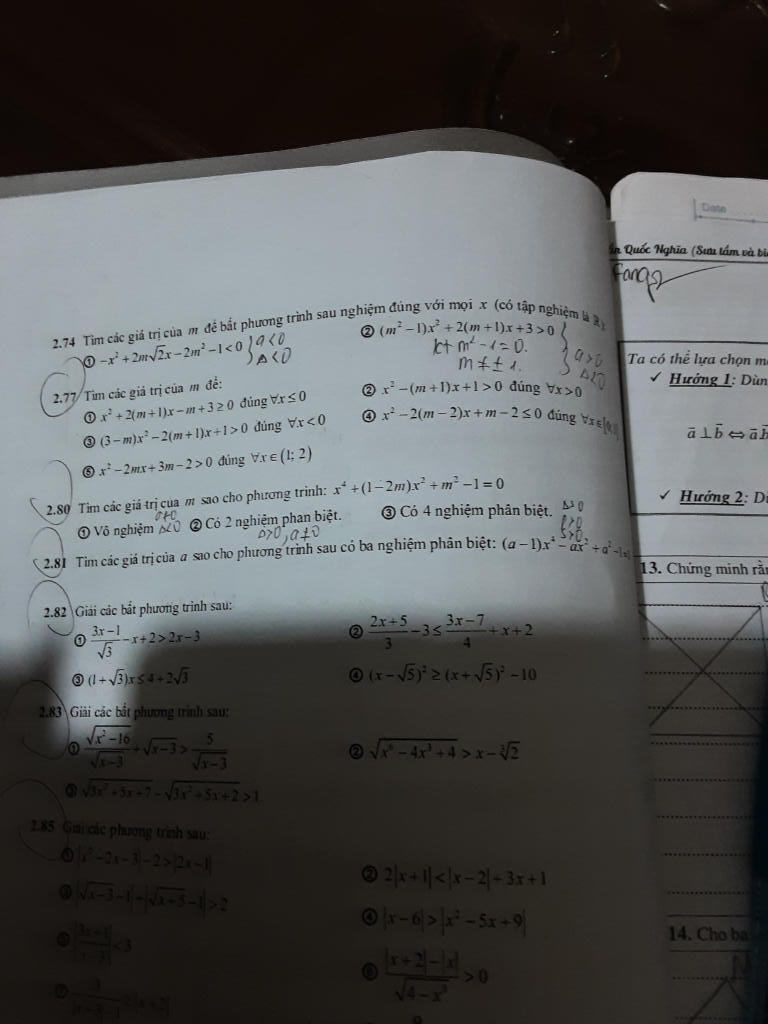 2.74 Tìm các giá trị của m để bất phương trình sau nghiệm đúng với mọi x (có tập nghiệm là ℝ).
① −x² + 2m√2x − 2m² − 1 < 0 } a<0 Δ<0
② (m² − 1)x² + 2(m + 1)x + 3 > 0 } a>0 Δ<0
m² − 1 = 0.
m ≠ ± 1.
2.77 Tìm các giá trị của m để:
① x² + 2(m + 1)x − m + 3 ≥ 0 đúng ∀x ≤ 0
② x² − (m + 1)x + 1 > 0 đúng ∀x > 0
③ (3 − m)x² − 2(m + 1)x + 1 > 0 đúng ∀x < 0
④ x² − 2(m − 2)x + m − 2 ≤ 0 đúng ∀x ∈
⑤ x² − 2mx + 3m − 2 > 0 đúng ∀x ∈ (1; 2)
2.80 Tìm các giá trị của m sao cho phương trình: x⁴ + (1 − 2m)x² + m² − 1 = 0
① Vô nghiệm Δ<0 ② Có 2 nghiệm phan biệt. ③ Có 4 nghiệm phân biệt.
Δ>0, a≠0
2.81 Tìm các giá trị của a sao cho phương trình sau có ba nghiệm phân biệt: (a − 1)x⁴ − ax² + a² − 1 =
2.82 Giải các bất phương trình sau:
① (3x − 1)/√3 − x + 2 > 2x − 3
② (2x + 5)/3 − 3 ≤ (3x − 7)/4 + x + 2
③ (1 + √3)x ≤ 4 + 2√3
④ (x − √5)² ≥ (x + √5)² − 10
2.83 Giải các bất phương trình sau:
① √(x² − 16)/√(x − 3) + √(x − 3) > 5/√(x − 3)
② √(x⁶ − 4x³ + 4) > x − ³√2
③ √(3x² + 5x + 7) − √(3x² + 5x + 2) > 1
2.85 Giải các phương trình sau:
① |x² − 2x − 3| − 2 > |2x − 1|
② 2|x + 1| < |x − 2| + 3x + 1
④ |x − 6| > |x² − 5x + 9|
⑥ (|x + 2| − |x|)/√(4 − x³) > 0
Date
Quốc Nghĩa (Sưu tầm và bi
Ta có thể lựa chọn m
✓ Hướng 1: Dùn
a ⊥ b ⇔ a b
✓ Hướng 2: D
13. Chứng minh rằn
14. Cho ba